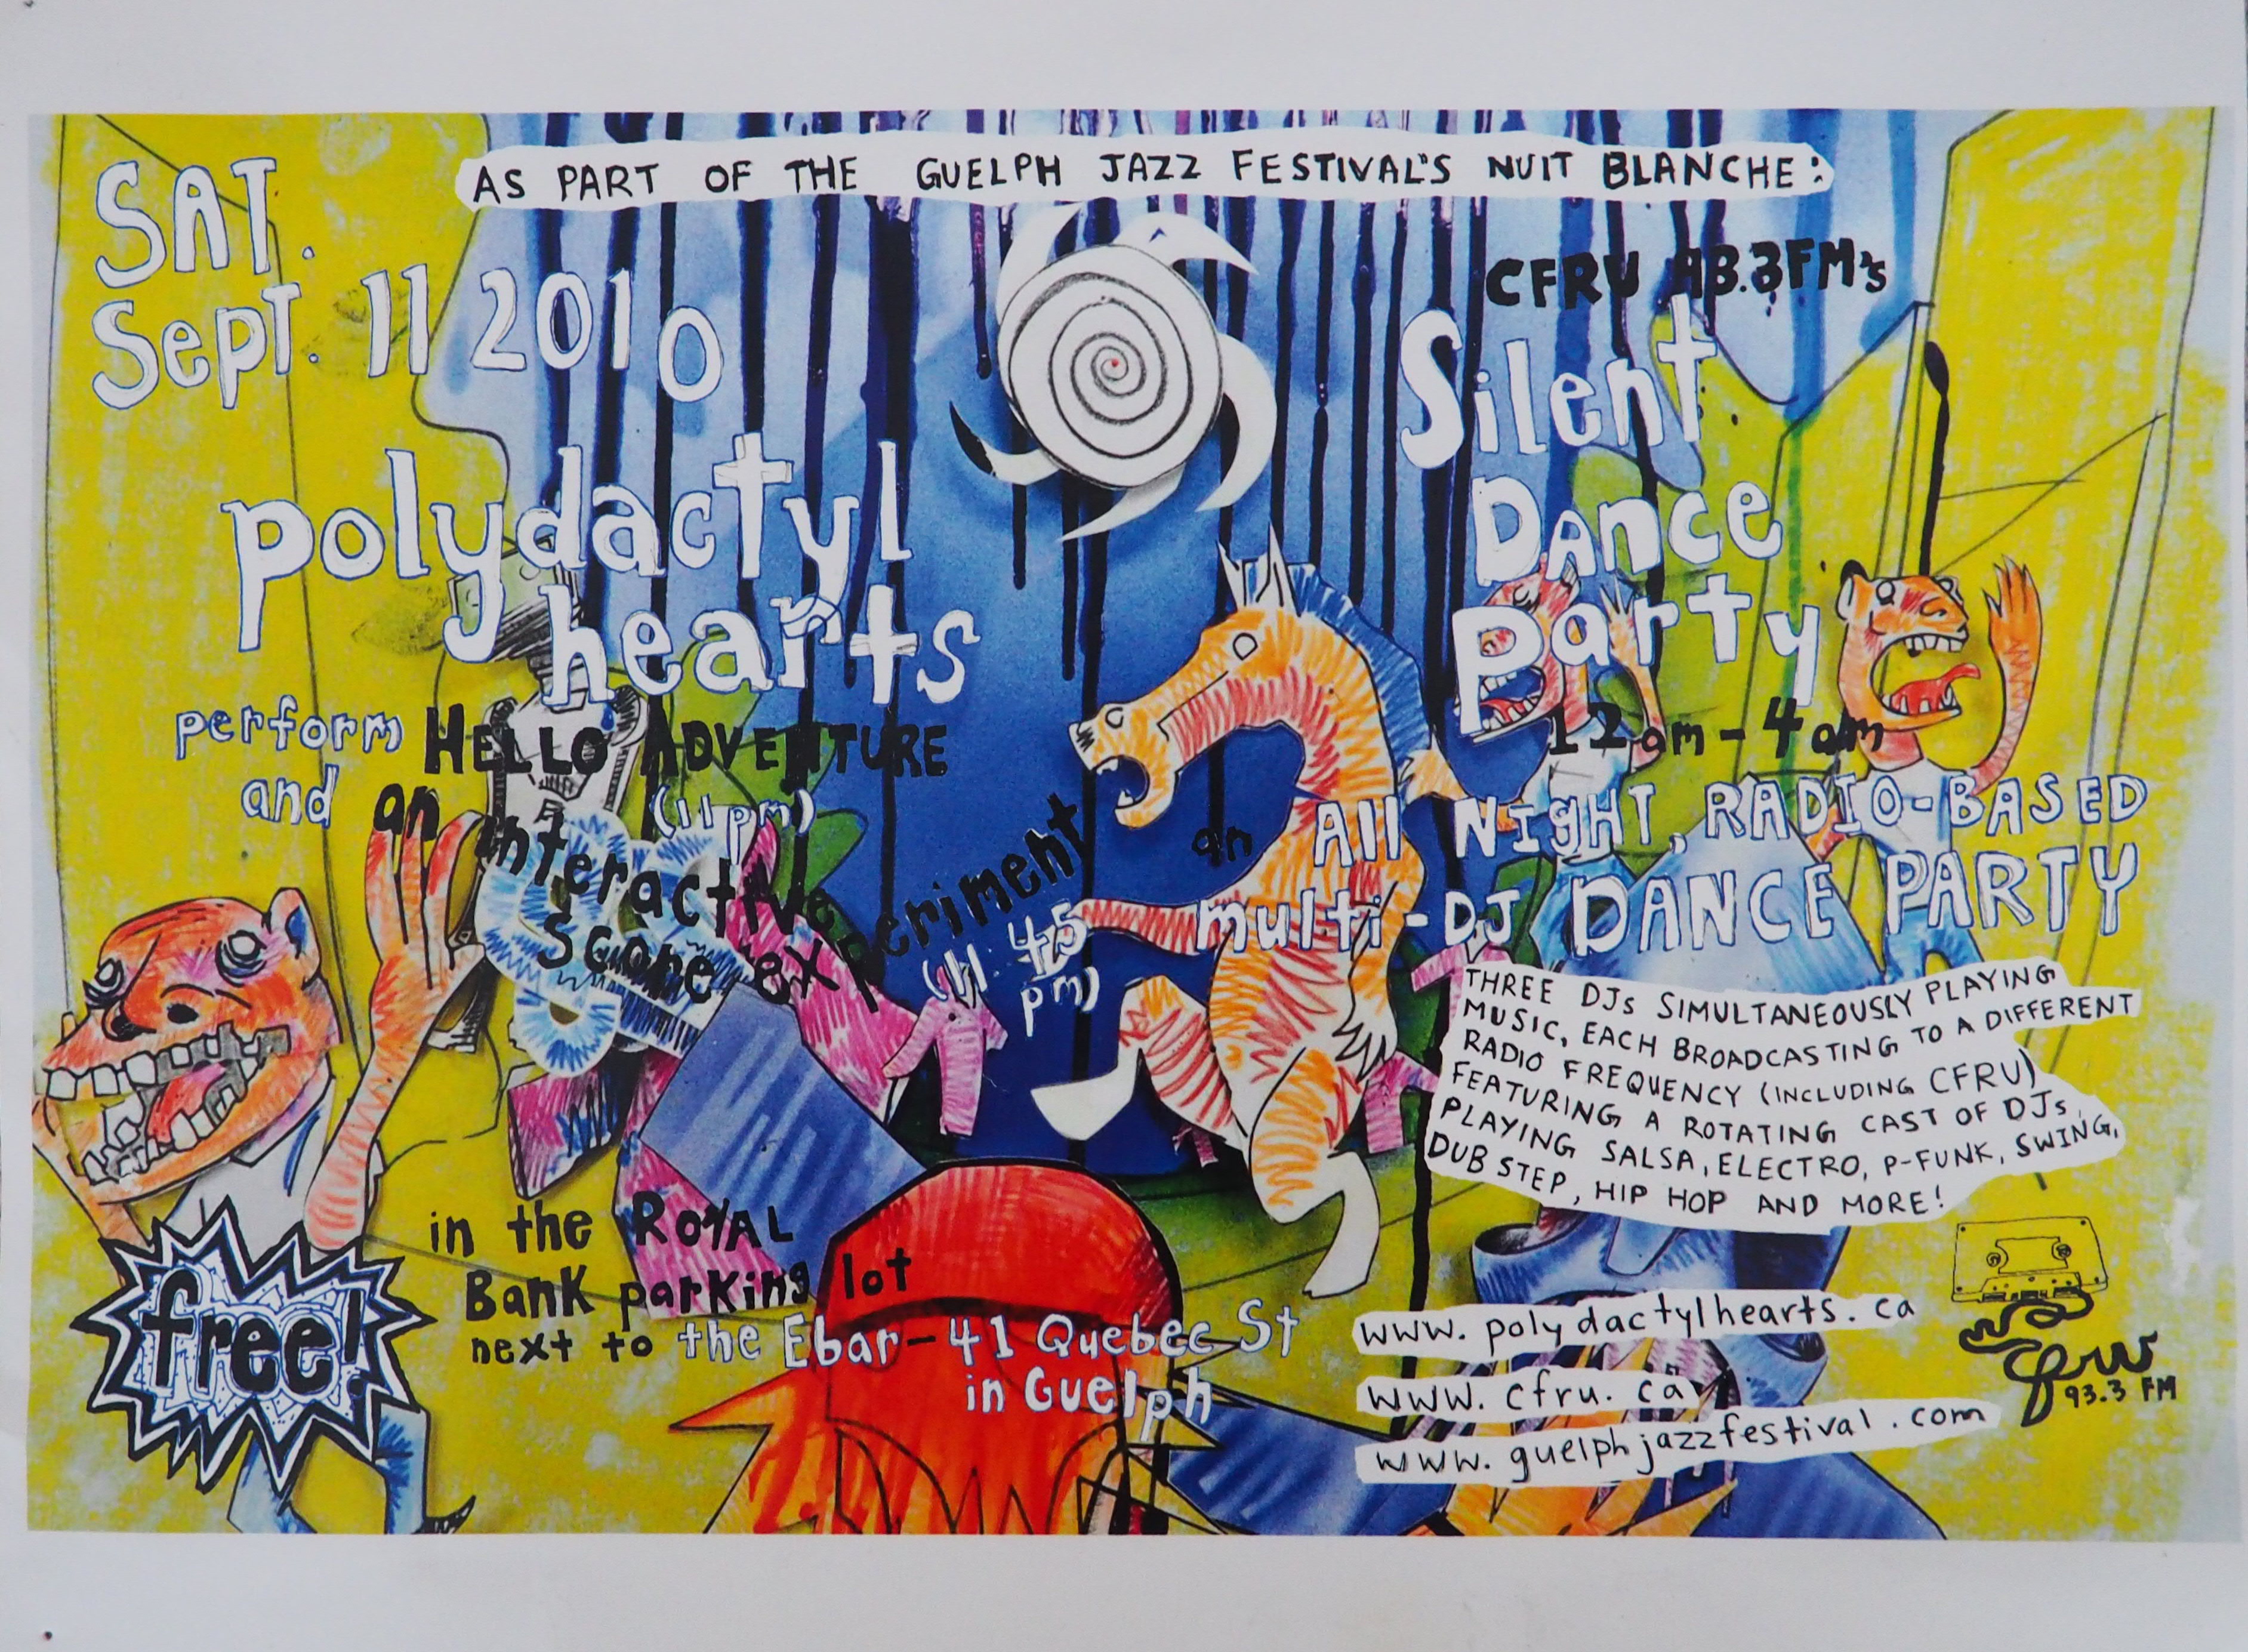 AS PART OF THE GUELPH JAZZ FESTIVAL'S NUIT BLANCHE:
SAT.
Sept. 11 2010
polydactyl
hearts
perform HELLO ADVENTURE
(11pm)
and an interactive
score experiment
(11:45
pm)
CFRU 93.3FM's
Silent
Dance
Party
12am-4am
an All Night, RADIO-BASED
multi-DJ DANCE PARTY
THREE DJs SIMULTANEOUSLY PLAYING
MUSIC, EACH BROADCASTING TO A DIFFERENT
RADIO FREQUENCY (INCLUDING CFRU)
FEATURING A ROTATING CAST OF DJs,
PLAYING SALSA, ELECTRO, P-FUNK, SWING,
DUB STEP, HIP HOP AND MORE!
free!
in the ROYAL
BanK parking lot
next to the Ebar-41 Quebec St
in Guelph
www.polydactylhearts.ca
www.cfru.ca
www.guelphjazzfestival.com
cfru
93.3 FM